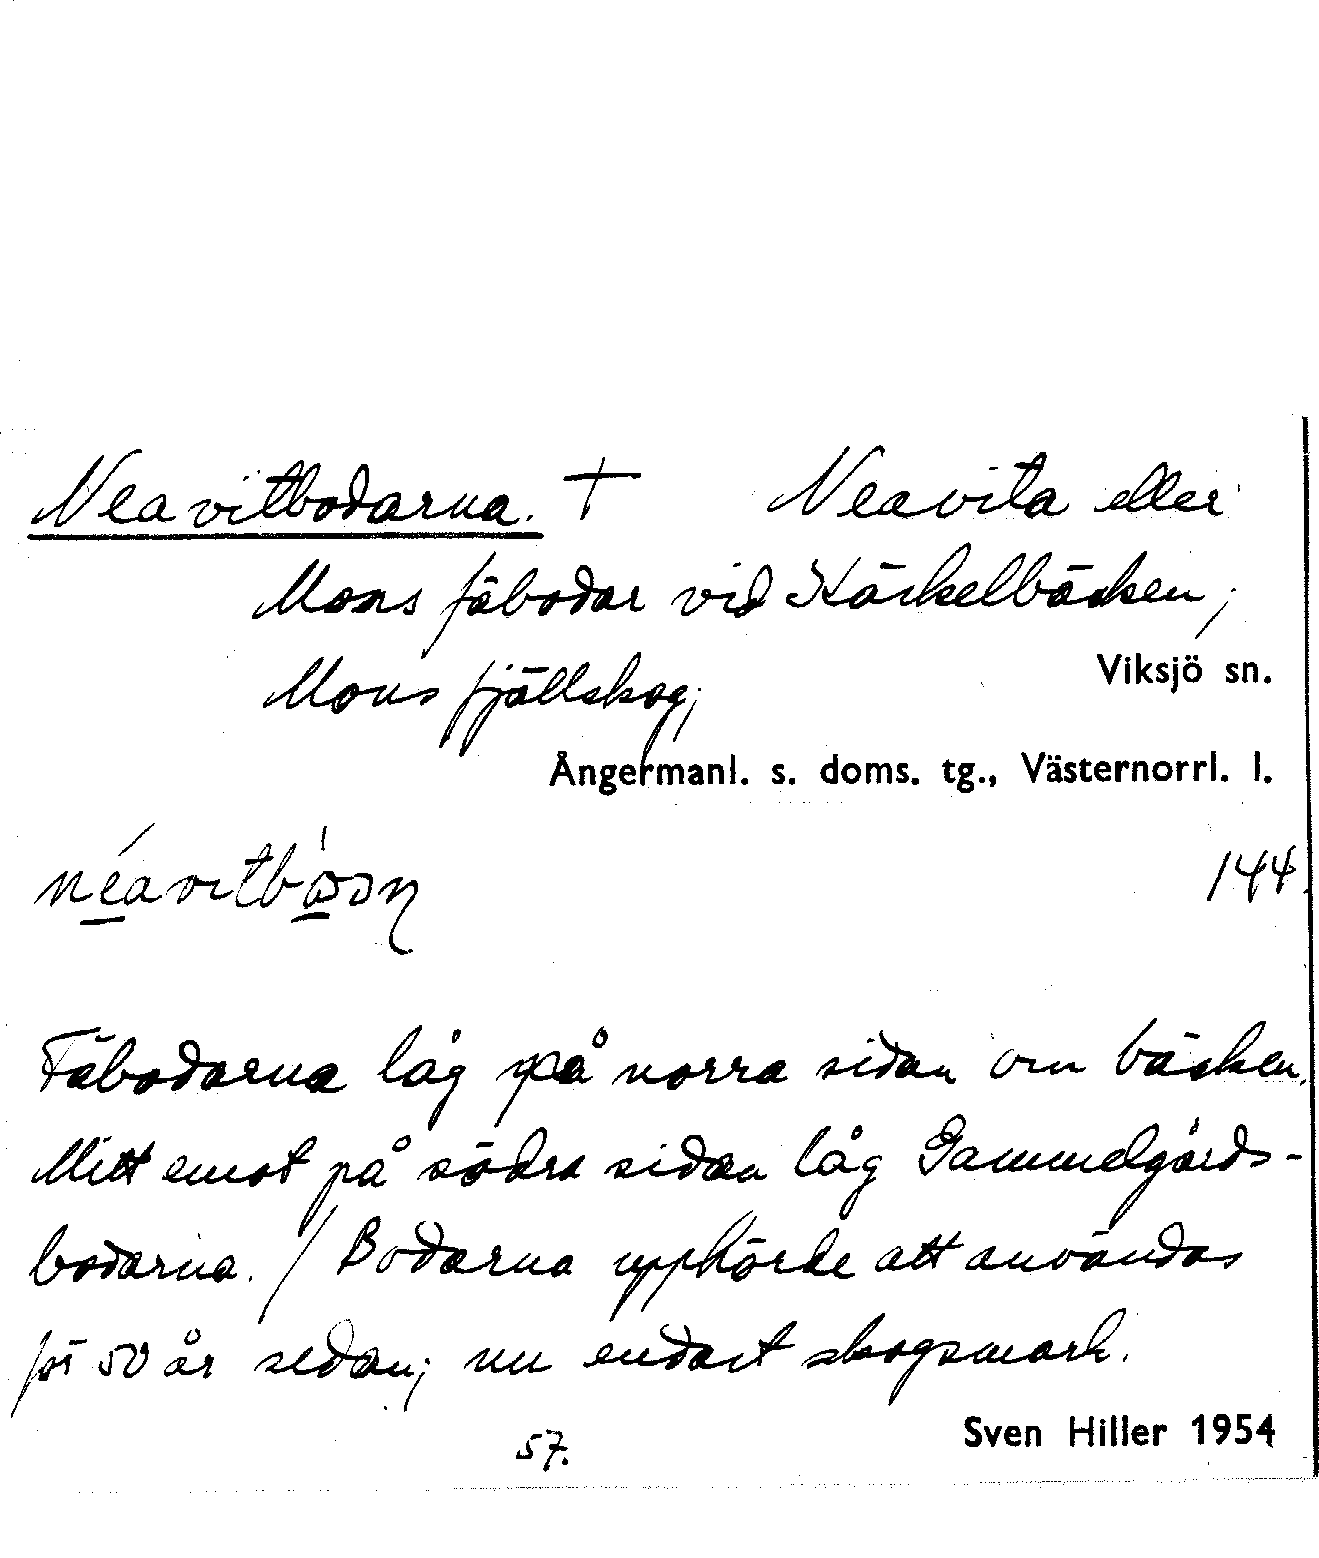 Neavitbodarna. + Neavita eller
Mons fäbodar vid Käckelbäcken,
Mons fjällskog;
Viksjö sn.
Ångermanl. s. doms. tg., Västernorrl. l.
144.
Fäbodarna låg på norra sidan om bäcken.
Mitt emot på södra sidan låg Gammelgårds-
bodarna. / Bodarna upphörde att användas
för 50 år sedan; nu endast skogsmark.
Sven Hiller 1954
57.